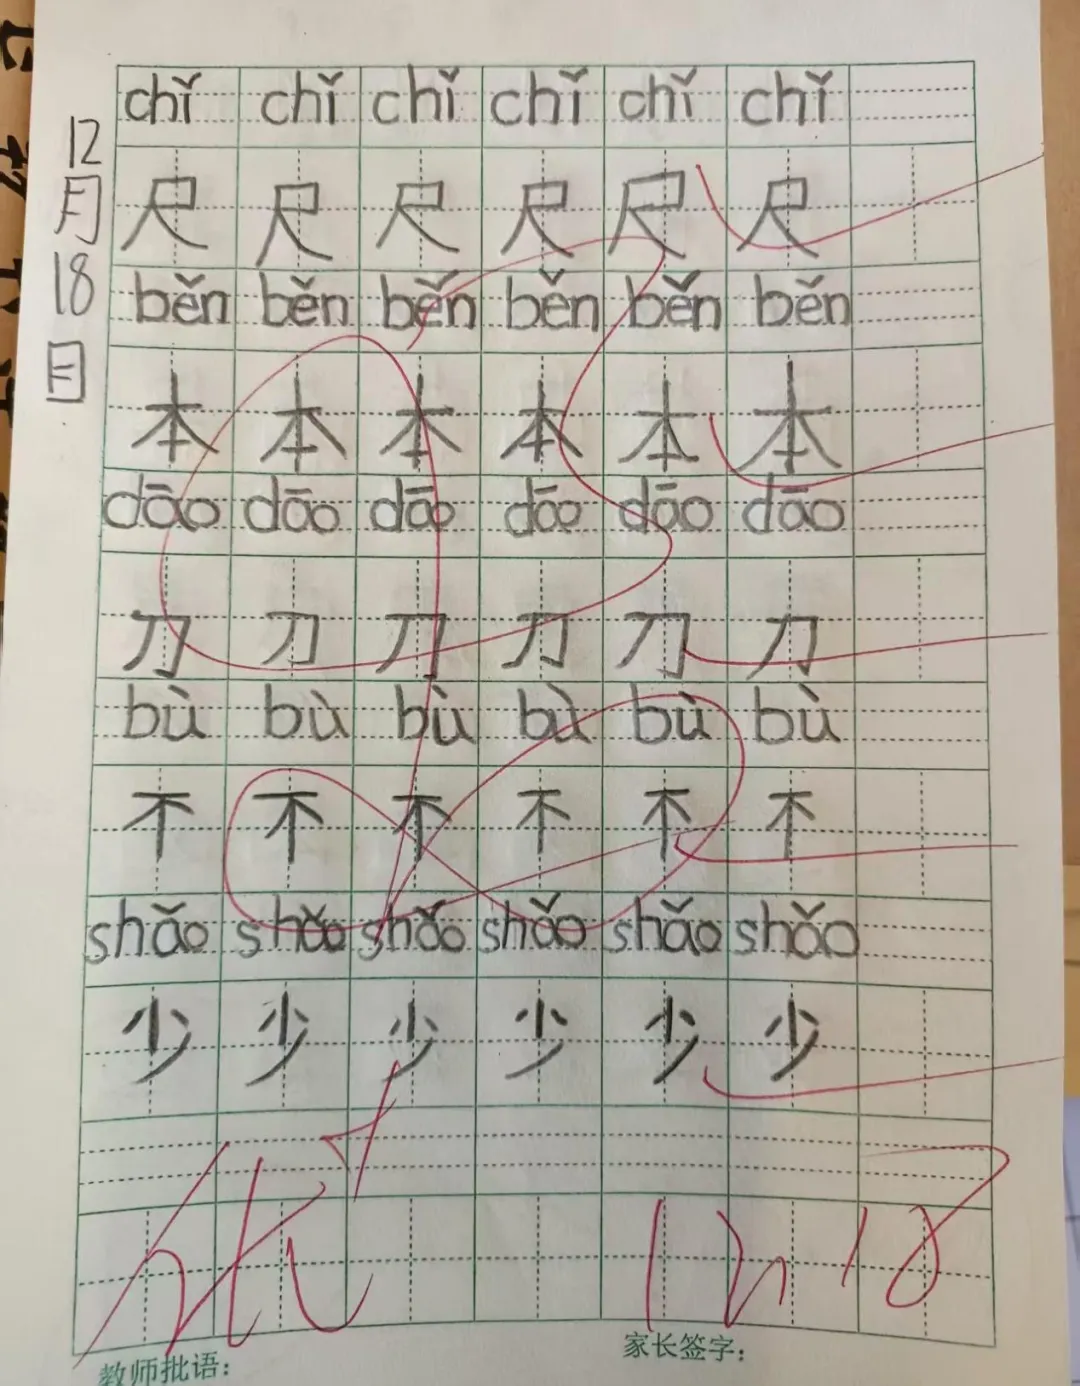 12月18日
chǐ chǐ chǐ chǐ chǐ chǐ
尺 尺 尺 尺 尺 尺
běn běn běn běn běn běn
本 本 本 本 本 本
dāo dāo dāo dāo dāo dāo
刀 刀 刀 刀 刀 刀
bù bù bù bù bù bù
不 不 不 不 不 不
shǎo shǎo shǎo shǎo shǎo shǎo
少 少 少 少 少 少
优 12.18
教师批语: 家长签字: